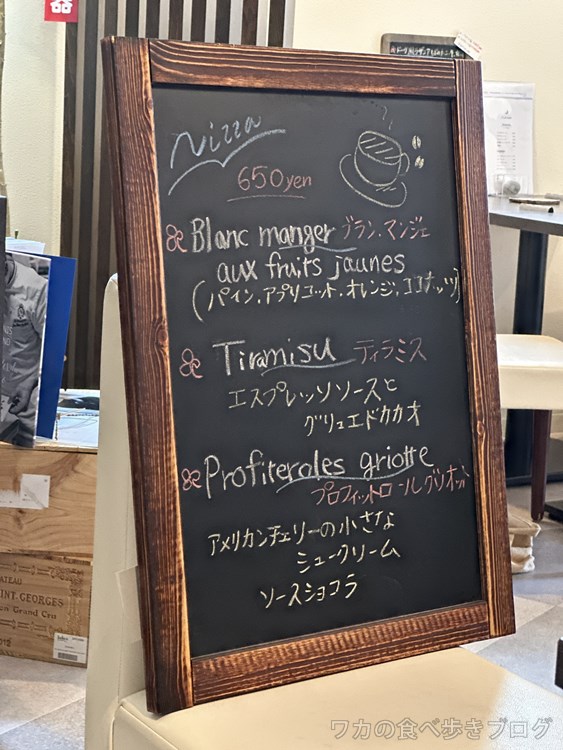 Nizza
650yen
Blanc manger ブラン.マンジェ
aux fruits jaunes
(パイン.アプリコット.オレンジ.ココナッツ)
Tiramisu ティラミス
エスプレッソソースと
グリュエドカカオ
Profiteroles griotte
プロフィットロールグリオット
アメリカンチェリーの小さな
シュークリーム
ソースショコラ
CHATEAU
SAINT-GEORGES
Grand Cru
ワカの食べ歩きブログ